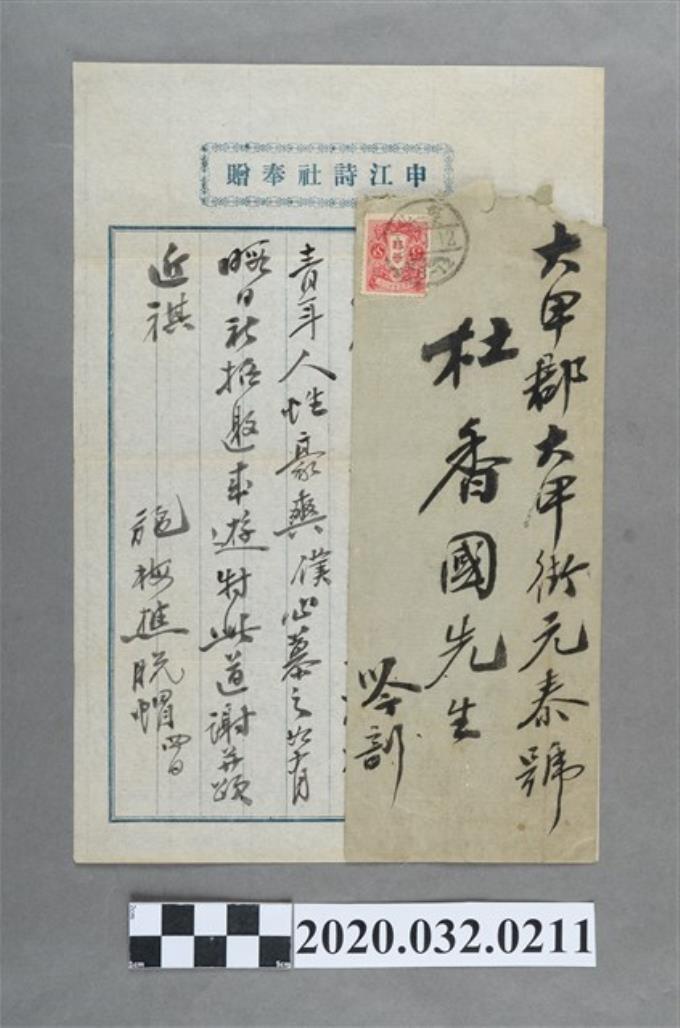 申江詩社奉贈
大甲郡大甲街元泰號
杜香國先生
吟訓
青年人性豪爽僕心慕之
暇日祈撥邀來遊特此道謝並頌
近祺
施梅樵脫帽 四日
2020.032.0211